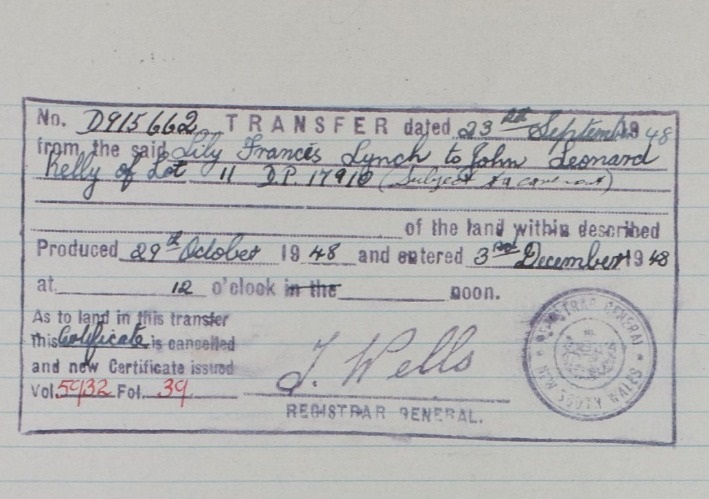 No. D915662 TRANSFER dated 23rd September 1948
from the said Lily Francis Lynch to John Leonard
Kelly of Lot 11 D.P. 17910 (Subject to covenant)
of the land within described
Produced 29th October 1948 and entered 3rd December 1948
at 12 o'clock in the noon.
As to land in this transfer
this Certificate is cancelled
and new Certificate issued
Vol. 5932 Fol. 39
J. Wells
REGISTRAR GENERAL.
REGISTRAR GENERAL
NEW SOUTH WALES